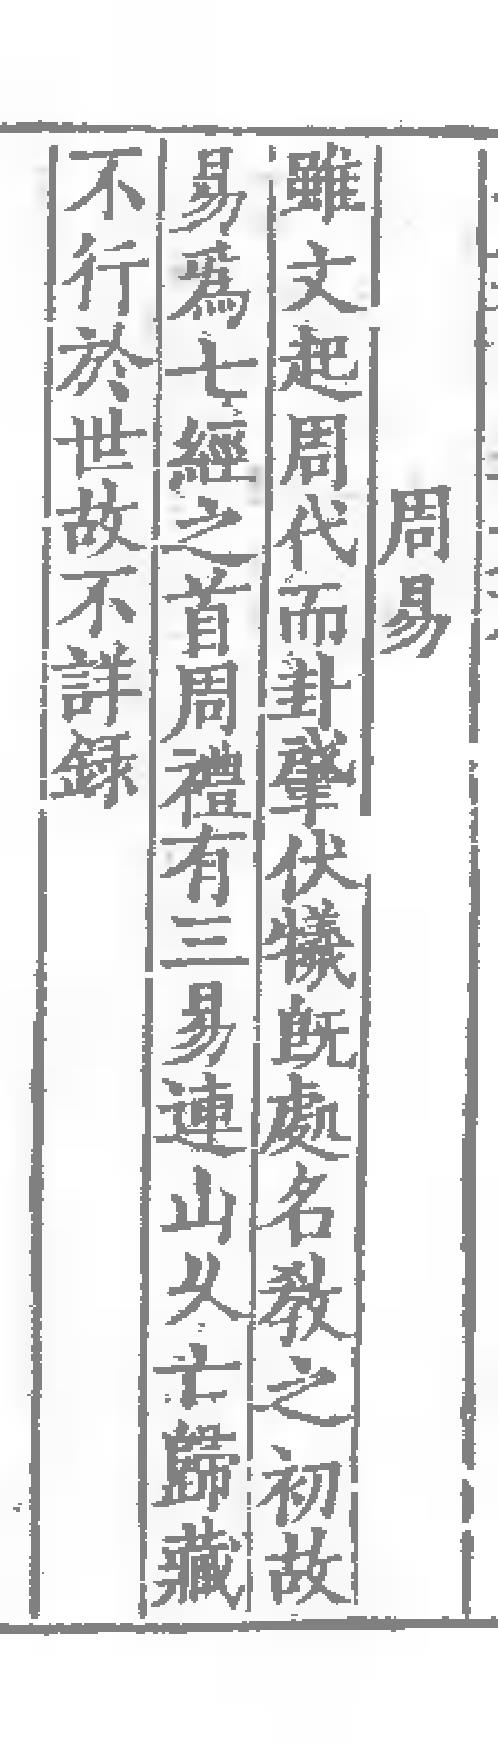 周易
雖文起周代而卦肇伏犧旣處名敎之初故
易爲七經之首周禮有三易連山乆亡歸藏
不行於世故不詳録